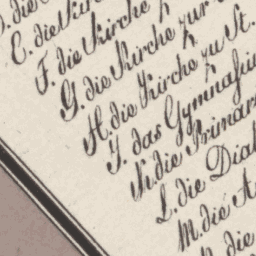 D. die
E. die Kir
F. die Kirche
G. die Kirche zur
H. die Kirche zu St.
J. das Gymnasiu
K. die Primar
L. die
M. die A
die